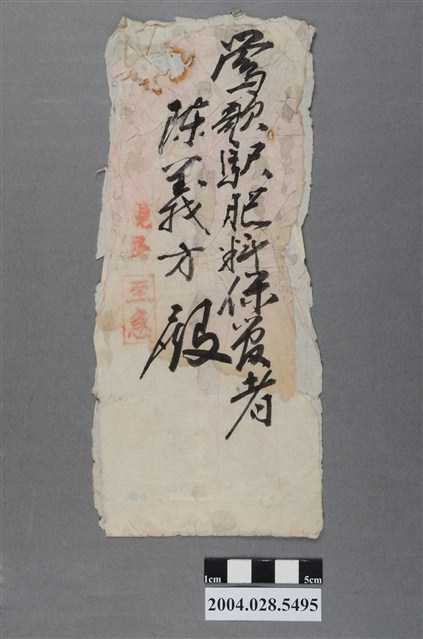 鶯歌駅肥料保管者
陳義方殿
至急
1cm 5cm
2004.028.5495